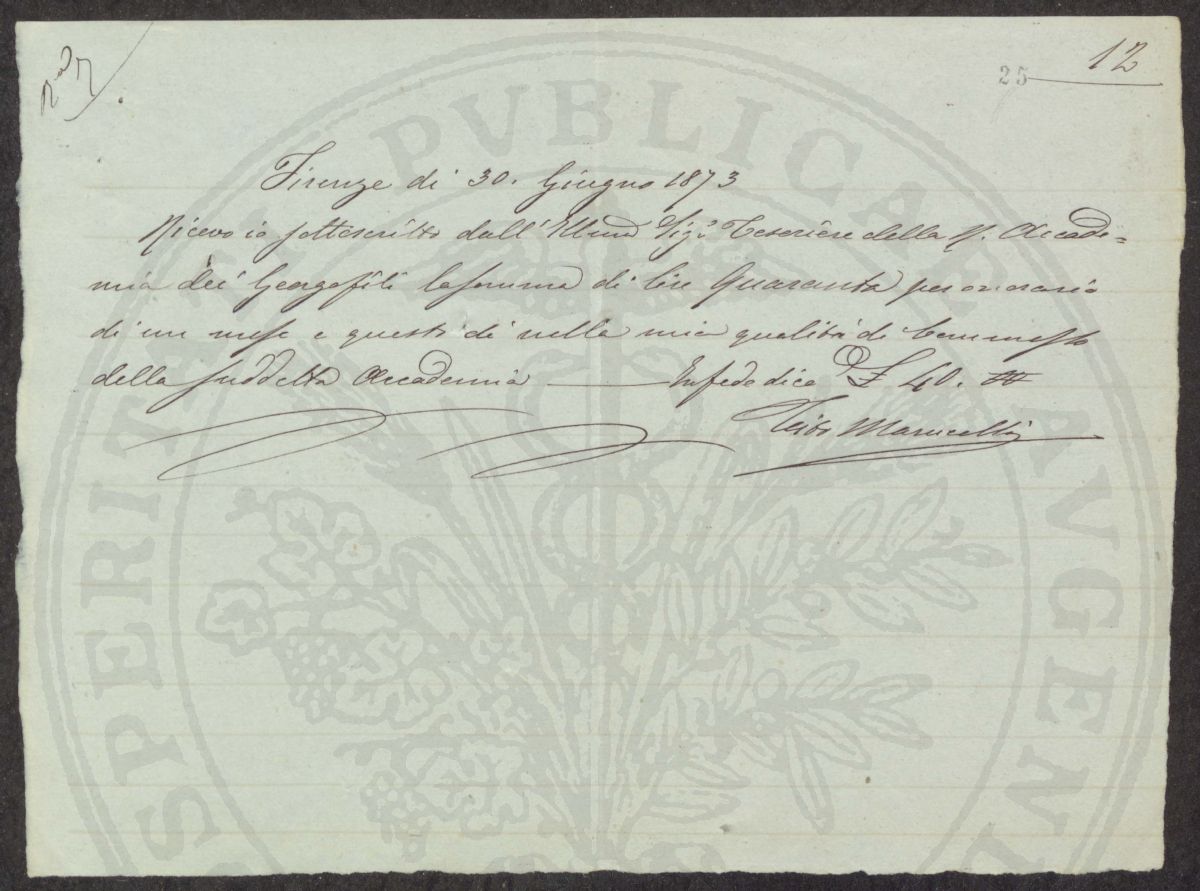 12
25
Firenze di 30. Giugno 1873
Ricevo io sottoscritto dall' Sig. Tesoriere della R. Accade=
mia dei Georgofili la somma di lire Quaranta per onorario
di un mese e questo di nella mia qualità di Commesso
della suddetta Accademia — In fede dico £ 40.
Marucelli
PROSPERITATI PVBLICAE AVGENDAE